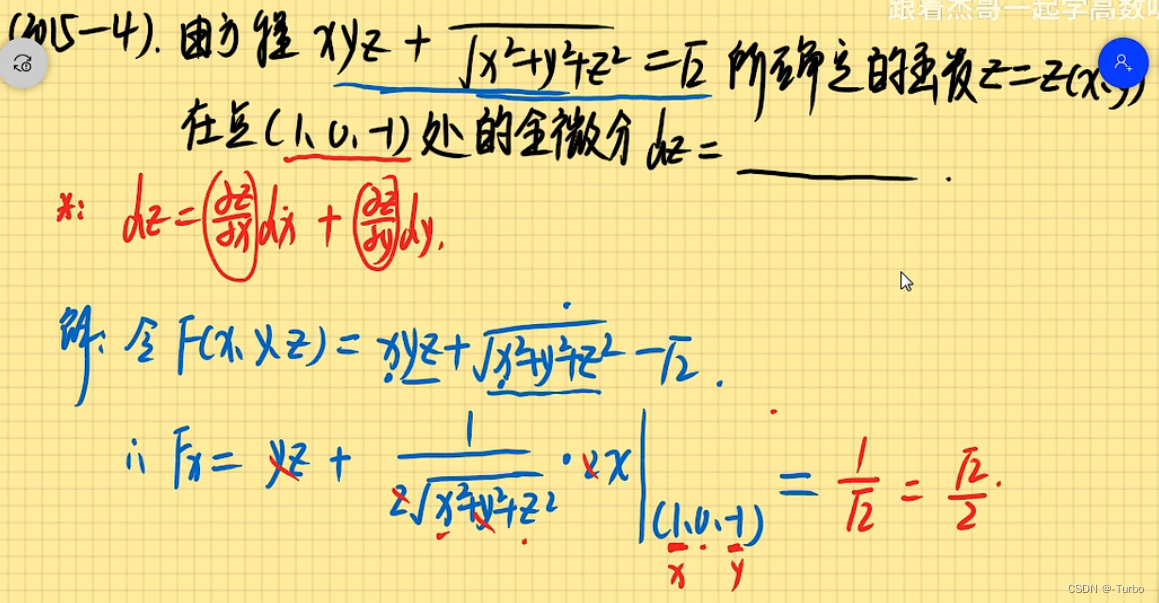 跟着杰哥一起学高数吧
(2015-4). 由方程 xyz + √(x²+y²+z²) = √2 所确定的函数z=z(x,y)
在点(1,0,-1)处的全微分dz= ______ .
*: dz = (∂z/∂x)dx + (∂z/∂y)dy.
解: 令 F(x,y,z) = xyz + √(x²+y²+z²) - √2 .
∴ Fx = yz + 1/(2√(x²+y²+z²)) · 2x |(1,0,-1) = 1/√2 = √2/2.
x y
CSDN @-Turbo